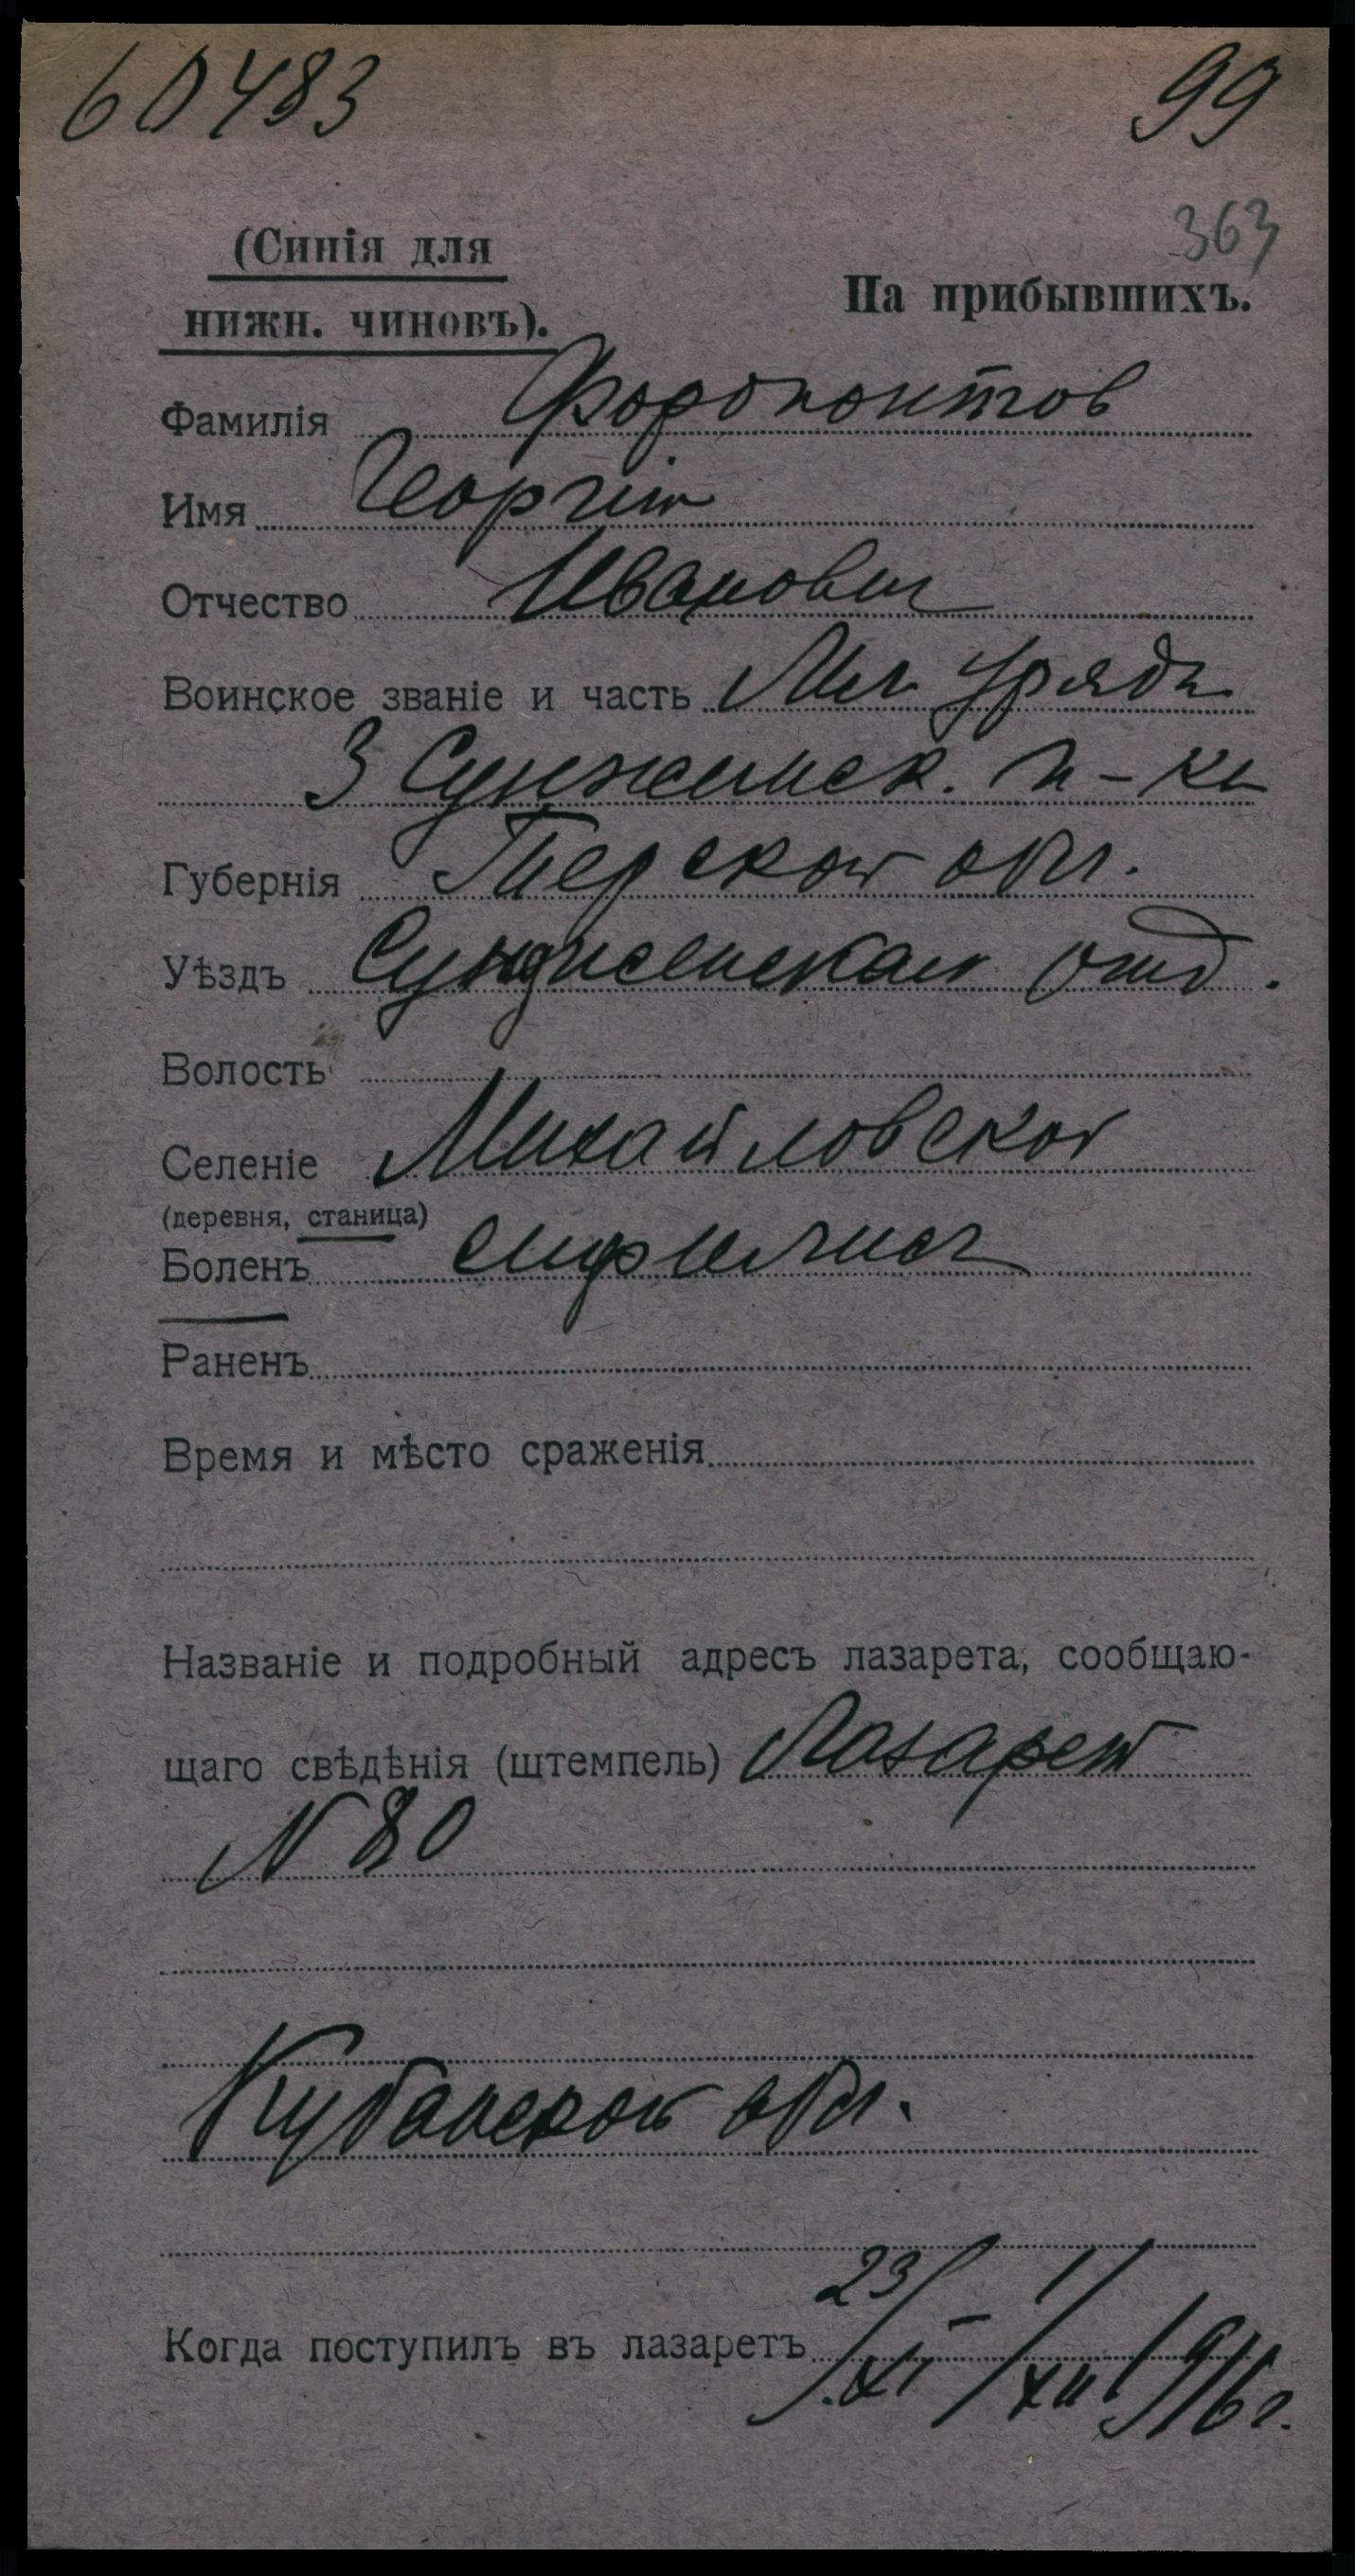 60483 99
363
(Синія для
нижн. чиновъ).
На прибывшихъ.
Фамилія Форопонтов
Имя Георгій
Отчество Иванович
Воинское званіе и часть Мл. Урядн.
3 Сунженск. п-ка
Губернія Терской обл.
Уѣздъ Сунженская отд.
Волость
Селеніе Михайловской
(деревня, станица)
Боленъ сифилис
Раненъ
Время и мѣсто сраженія
Названіе и подробный адресъ лазарета, сообщаю-
щаго свѣдѣнія (штемпель) Лазарет
N 80
Кубанской обл.
Когда поступилъ въ лазаретъ 23/XI - 1/XII 1916 г.